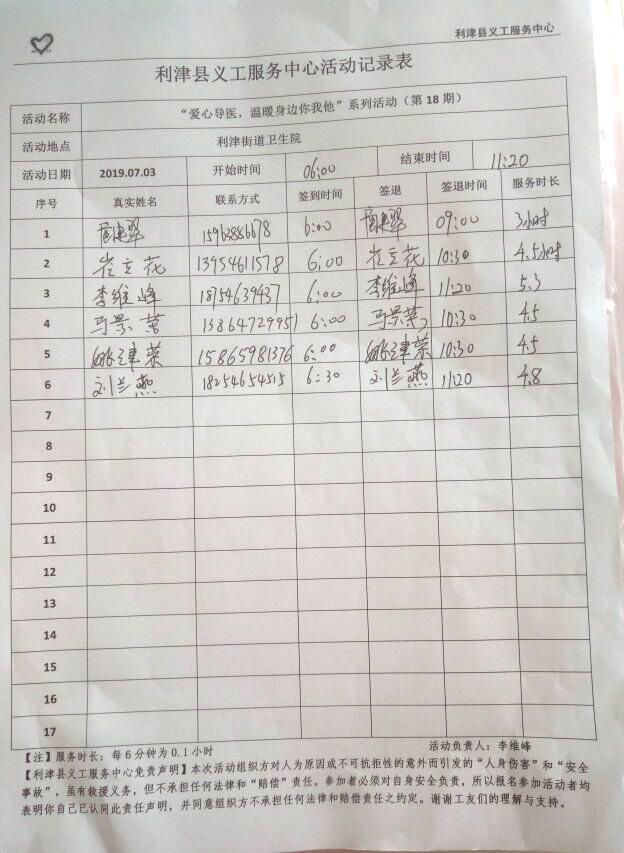 利津县义工服务中心
利津县义工服务中心活动记录表
活动名称 “爱心导医，温暖身边你我他”系列活动（第 18 期）
活动地点 利津街道卫生院
活动日期 2019.07.03 开始时间 06:00 结束时间 11:20
序号 真实姓名 联系方式 签到时间 签退 签退时间 服务时长
1 15963886678 6:00 09:00 3小时
2 崔立花 13954611578 6:00 崔立花 10:30 4.5小时
3 李维峰 18754639437 6:00 李维峰 11:20 5.3
4 马景荣 13864729951 6:00 马景荣 10:30 4.5
5 姚津荣 15865981376 6:00 姚津荣 10:30 4.5
6 刘兰燕 18254654515 6:30 刘兰燕 11:20 4.8
7
8
9
10
11
12
13
14
15
16
17
【注】服务时长：每 6 分钟为 0.1 小时 活动负责人：李维峰
【利津县义工服务中心免责声明】本次活动组织方对人为原因或不可抗拒性的意外而引发的“人身伤害”和“安全
事故”，虽有救援义务，但不承担任何法律和“赔偿”责任。参加者必须对自身安全负责，所以报名参加活动者均
表明你自己已认同此责任声明，并同意组织方不承担任何法律和赔偿责任之约定。谢谢工友们的理解与支持。